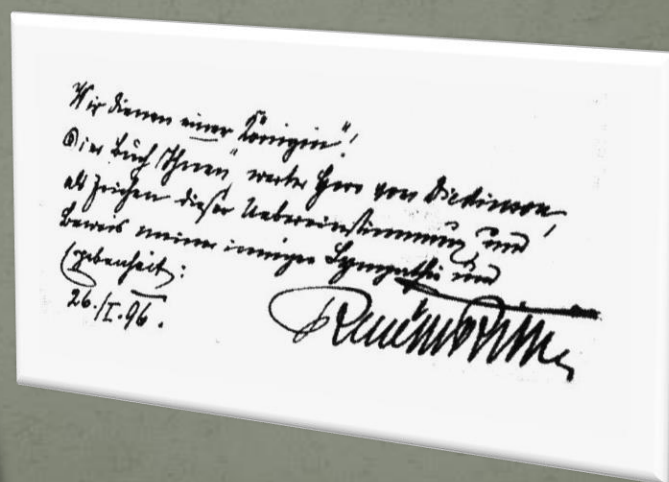 Wir dienen einer Königin"!
Dies Buch Ihnen, werter Herr von Dickinson,
als Zeichen dieser Uebereinstimmung und
Beweis meiner innigen Sympathie und
Ergebenheit:
26./I. 96.
René Maria Rilke